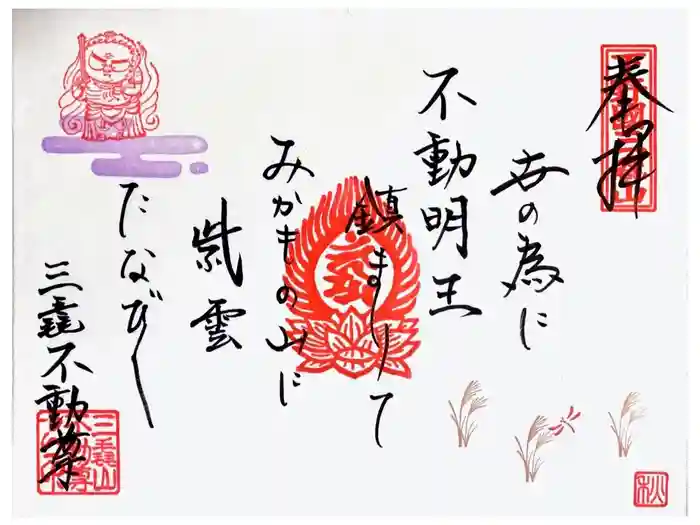 奉拝
世の為に
不動明王
鎮まりて
みかもの山に
紫雲
たなびく
三毳不動尊
三毳山
不動尊
秋